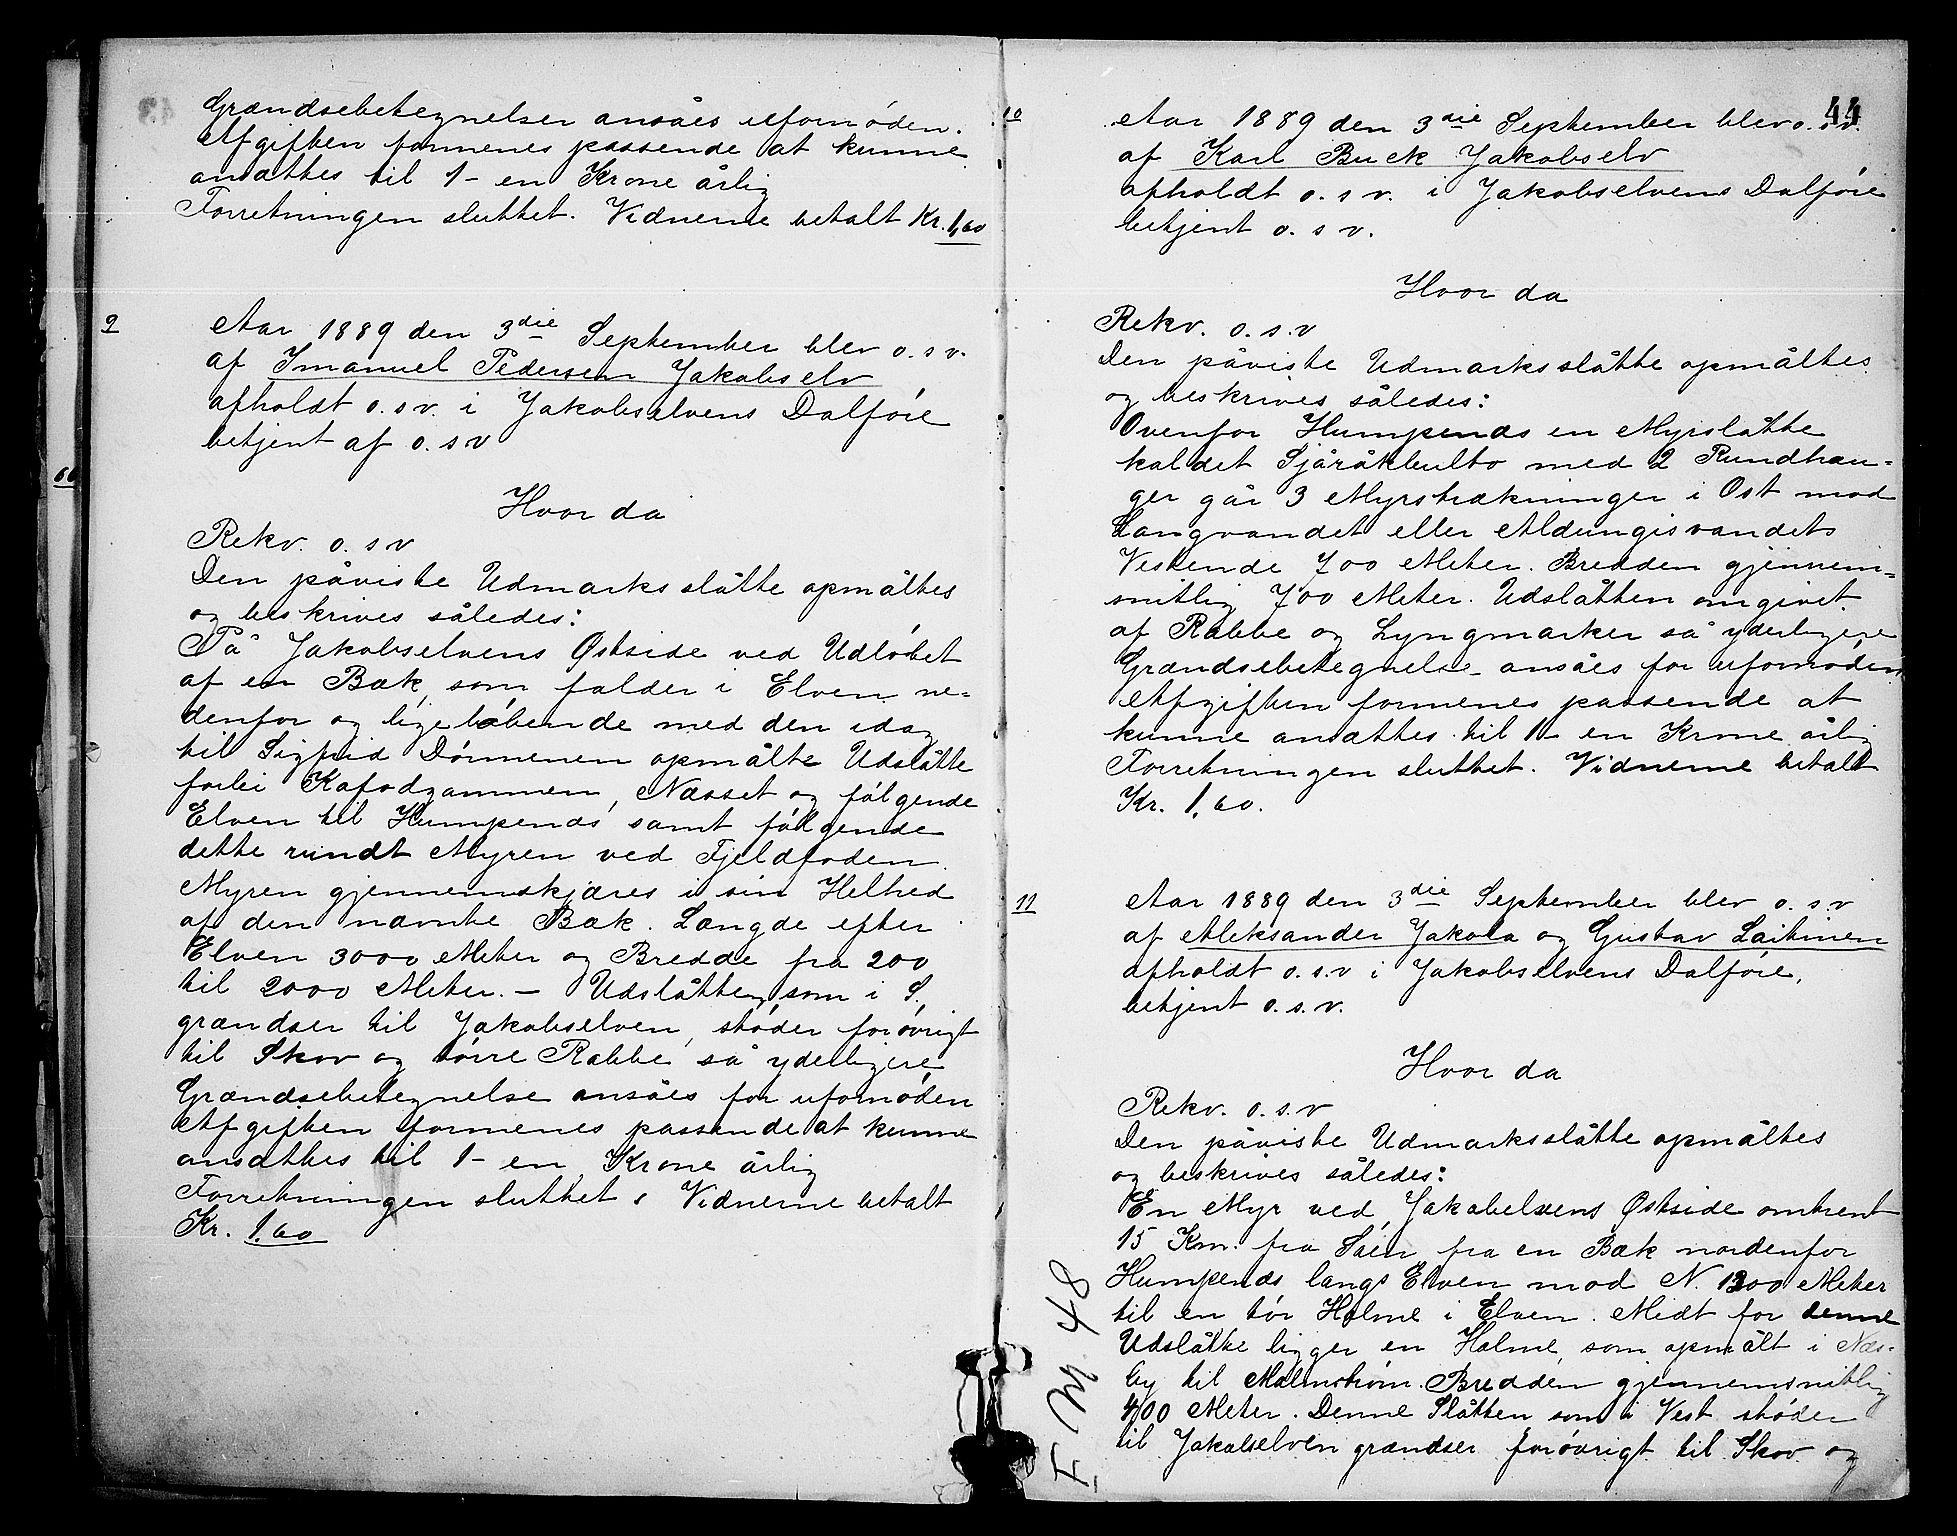 Grændsebetegnelser ansåes ufornøden.
Afgiften formenes passende at kunne
ansættes til 1- en Krone årlig
Forretningen sluttet. Vidnerne betalt Kr. 1,60
9
Aar 1889 den 3die September blev o. s v.
af Imanuel Pedersen Jakobselv
afholdt o. s v. i Jakobselvens Dalføre
betjent af o. s v
Hvor da
Rekv. o. s v
Den påviste Udmarksslåtte opmåltes
og beskrives således:
På Jakobselvens Østside ved Udløbet
af en Bæk, som falder i Elven ne-
denfor og ligeløbende med den idag
til Sigfrid Dørmenen opmålte Udslåtte
forbi Kafodgammen, Næsset og følgende
Elven til Humpenäs samt følgende
dette rundt Myren ved Fjeldfoden
Myren gjennemskjæres i sin Helhed
af den nævnte Bæk. Længde efter
Elven 3000 Meter og Bredde fra 200
til 2000 Meter. - Udslåtten, som i S.
grændser til Jakobselven, støder forøvrigt
til Skov og tørre Rabbe, så yderligere
Grændsebetegnelse ansåes for ufornøden
Afgiften formenes passende at kunne
ansættes til 1- en Krone årlig
Forretningen sluttet. Vidnerne betalt
Kr. 1.60
44
10
Aar 1889 den 3die September blev o. s v.
af Karl Buck Jakobselv
afholdt o. s v. i Jakobselvens Dalføre
betjent o. s v.
Hvor da
Rekv. o. s. v
Den påviste Udmarksslåtte opmåltes
og beskrives således:
Ovenfor Humpenäs en Myrslåtte
kaldet Sjåråkbulto med 2 Rundhau-
ger går 3 Myrstrækninger i Ost mod
Langvandet eller Aldungisvandets
Vestende 700 Meter. Bredden gjennem-
snitlig 700 Meter. Udslåtten omgivet
af Rabbe og Lyngmarker så yderligere
Grændsebetegnelse ansåes for ufornøden
Afgiften formenes passende at
kunne ansættes til 1- en Krone årlig
Forretningen sluttet. Vidnerne betalt
Kr. 1,60.
11
Aar 1889 den 3die September blev o. s. v
af Aleksander Jakola og Gustav Laitinen
afholdt o. s. v i Jakobselvens Dalføre,
betjent o. s. v.
Hvor da
Rekv. o. s. v
Den påviste Udmarksslåtte opmåltes
og beskrives således:
En Myr ved Jakobelvens Østside omtrent
15 Km. fra Søen fra en Bæk nordenfor
Humpenäs langs Elven mod N. 1300 Meter
til en tør Holme i Elven. Midt for denne
Udslåtte ligger en Holme, som opmålt i Næs-
by til Malmstrøm. Bredden gjennemsnitlig
400 Meter. Denne Slåtten som i Vest støder
til Jakobselven grændser forøvrigt til Skov og
F M 48